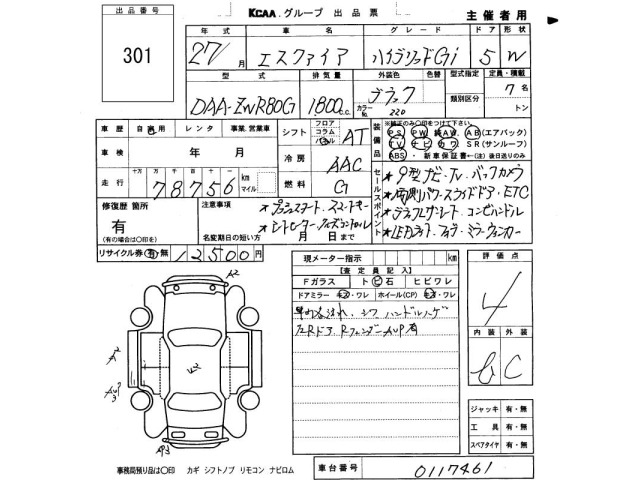 出品番号
301
KCAA グループ 出品票
主催者用
年式 車名 グレード ドア 形状
27年 月 エスクァイア ハイブリッドGi 5 W
型式 排気量 外装色 色替 型式指定 定員・積載
DAA-ZWR80G 1800cc ブラック カラーNo. 220 類別区分 7名 トン
車歴 自家用 レンタ 事業.営業車
シフト フロア コラム パネル AT
装備品
※純正のみ〇印をつけて下さい。
PS PW 純AW AB(エアバック)
TV ナビ カワ SR(サンルーフ)
ABS・新車保証書←(注)後日送りのみ
車検 年 月
冷房 AAC
走行 十万 万 千 百 十 km マイル
78756
燃料 G
セールスポイント
★9型ナビ・TV バックカメラ
★両側パワースライドドア・ETC
★ハーフレザーシート コンビハンドル
★LEDライト・フォグ・ミラーウィンカー
修復歴 箇所
有
(有の場合は〇印を)
注意事項
★プッシュスタート スマートキー
★シートヒーター クルーズコントロール
名変期日の短い方 月 日まで
リサイクル券 有 無 12500円
現メーター指示 km
【査定員記入】
Fガラス トビ石 ヒビワレ
ドアミラー キズ・ワレ ホイール(CP) キズ・ワレ
シワ ハンドルハゲ
左Rドア、Rフェンダー AUP有
評価点
4
内装 外装
b C
A2
A2
AUP3
AP3
ジャッキ 有・無
工具 有・無
スペアタイヤ 有・無
事務局預り品は〇印 カギ シフトノブ リモコン ナビロム
車台番号 0117461